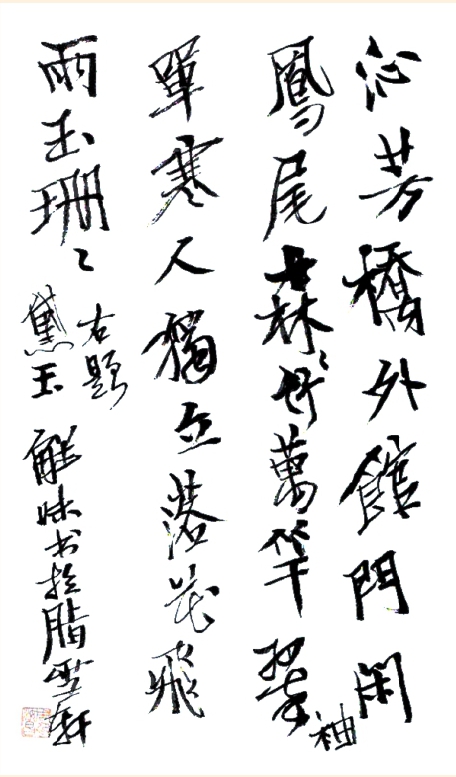 沁芳橋外館門閑
鳳尾森々竹萬竿翠袖
單寒人獨立落花飛
雨玉珊々
右題
黛玉 解味书於脂雪轩